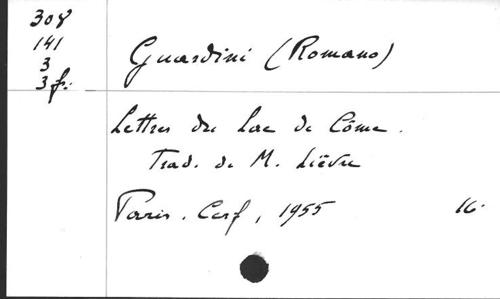 308
141
3
3 fr.
Guardini (Romano)
Lettres du Lac de Côme.
Trad. de M. Lièvre
Paris. Cerf, 1955 16°